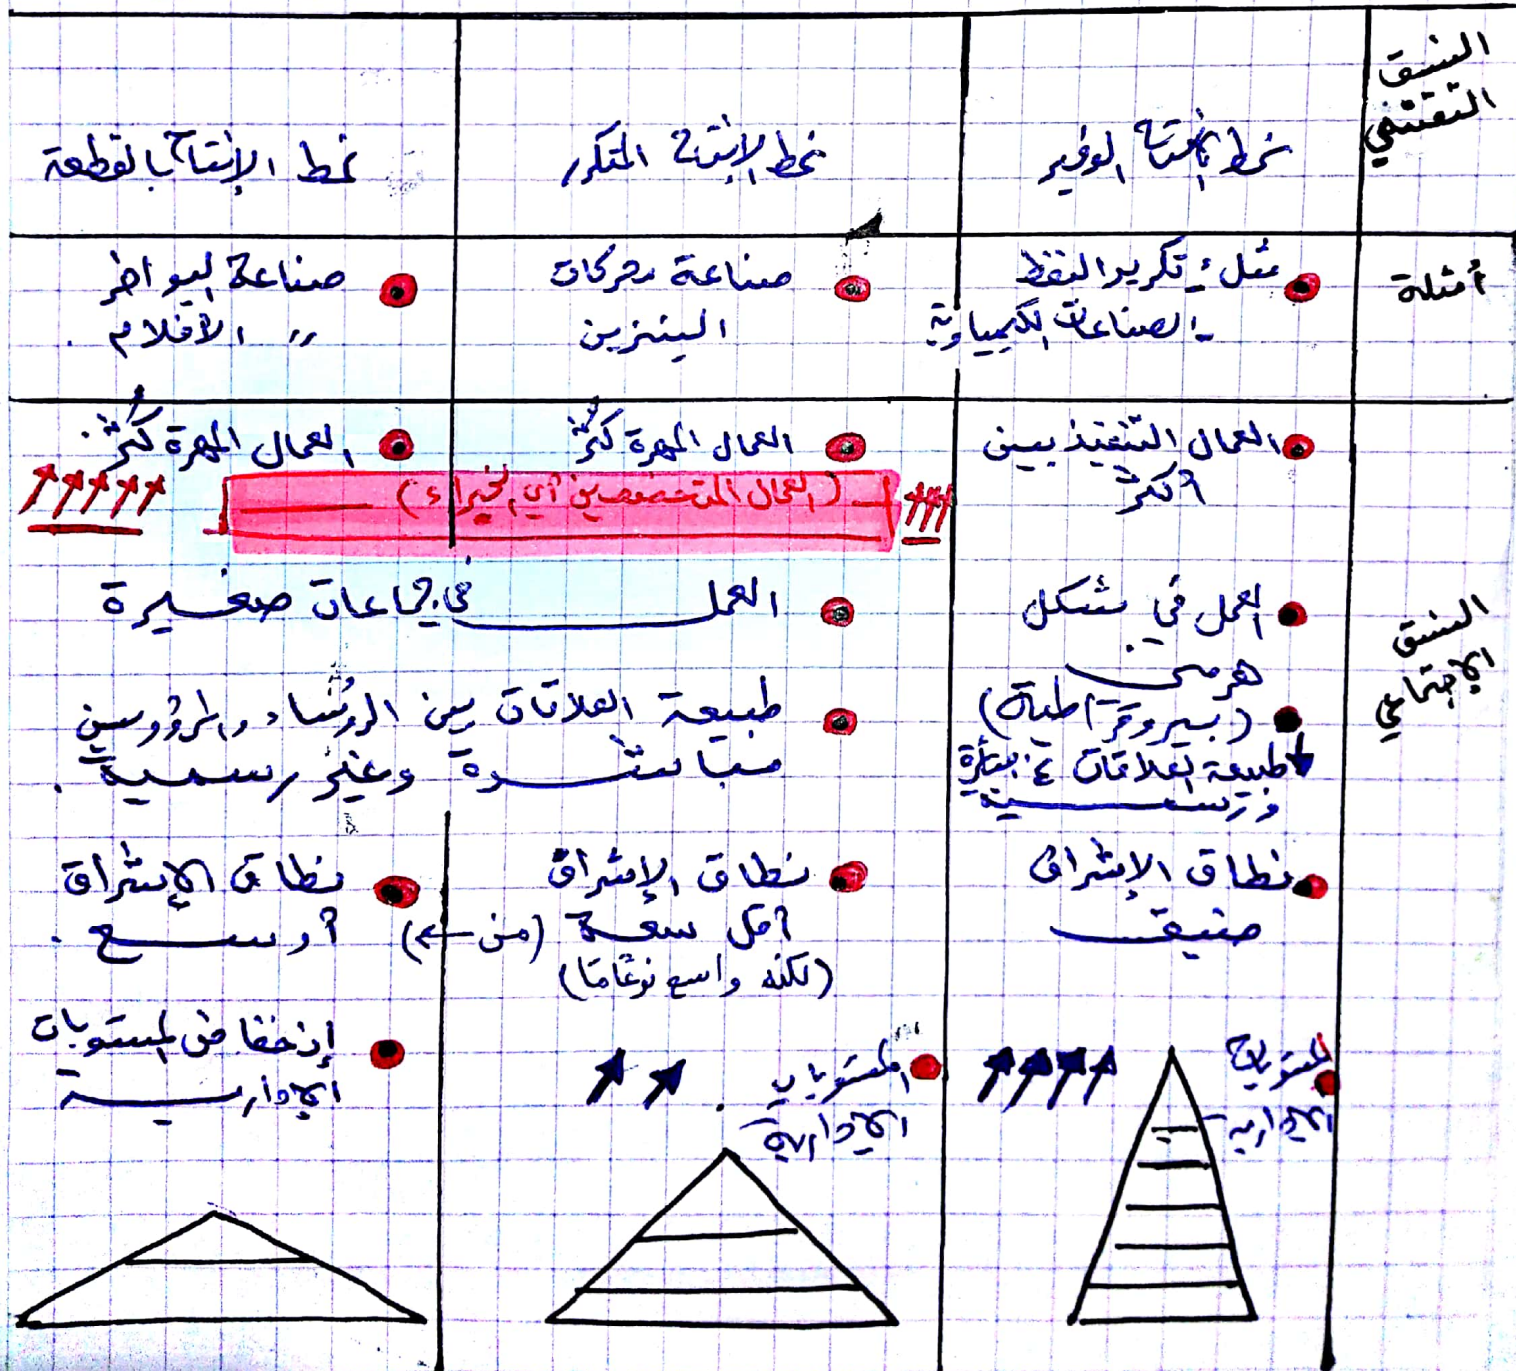 النسق
التقني
نمط الإنتاج الوفير
نمط الإنتاج المتكرر
نمط الإنتاج بالقطعة
أمثلة
مثل: تكرير النفط
- الصناعات الكيمياوية
صناعة محركات
البنزين
صناعة البواخر
〃 الأفلام .
النسق
الاجتماعي
العمال التنفيذيين
أكثر
العمال المهرة كُثُر
العمال المهرة كُثُر.
(العمال المتخصصين أي الخبراء)
العمل في شكل
هرمي
(بيروقراطية)
طبيعة العلاقات غ. مباشرة
ورسمية
العمل في جماعات صغيرة
طبيعة العلاقات بين الرؤساء والمرؤوسين
مباشرة وغير رسمية .
نطاق الإشراف
ضيق
نطاق الإشراف
أقل سعة (من ←)
(لكنه واسع نوعًا ما)
نطاق الإشراف
أوسع .
المستويات
الإدارية
المستويات
الإدارية
إنخفاض المستويات
الإدارية